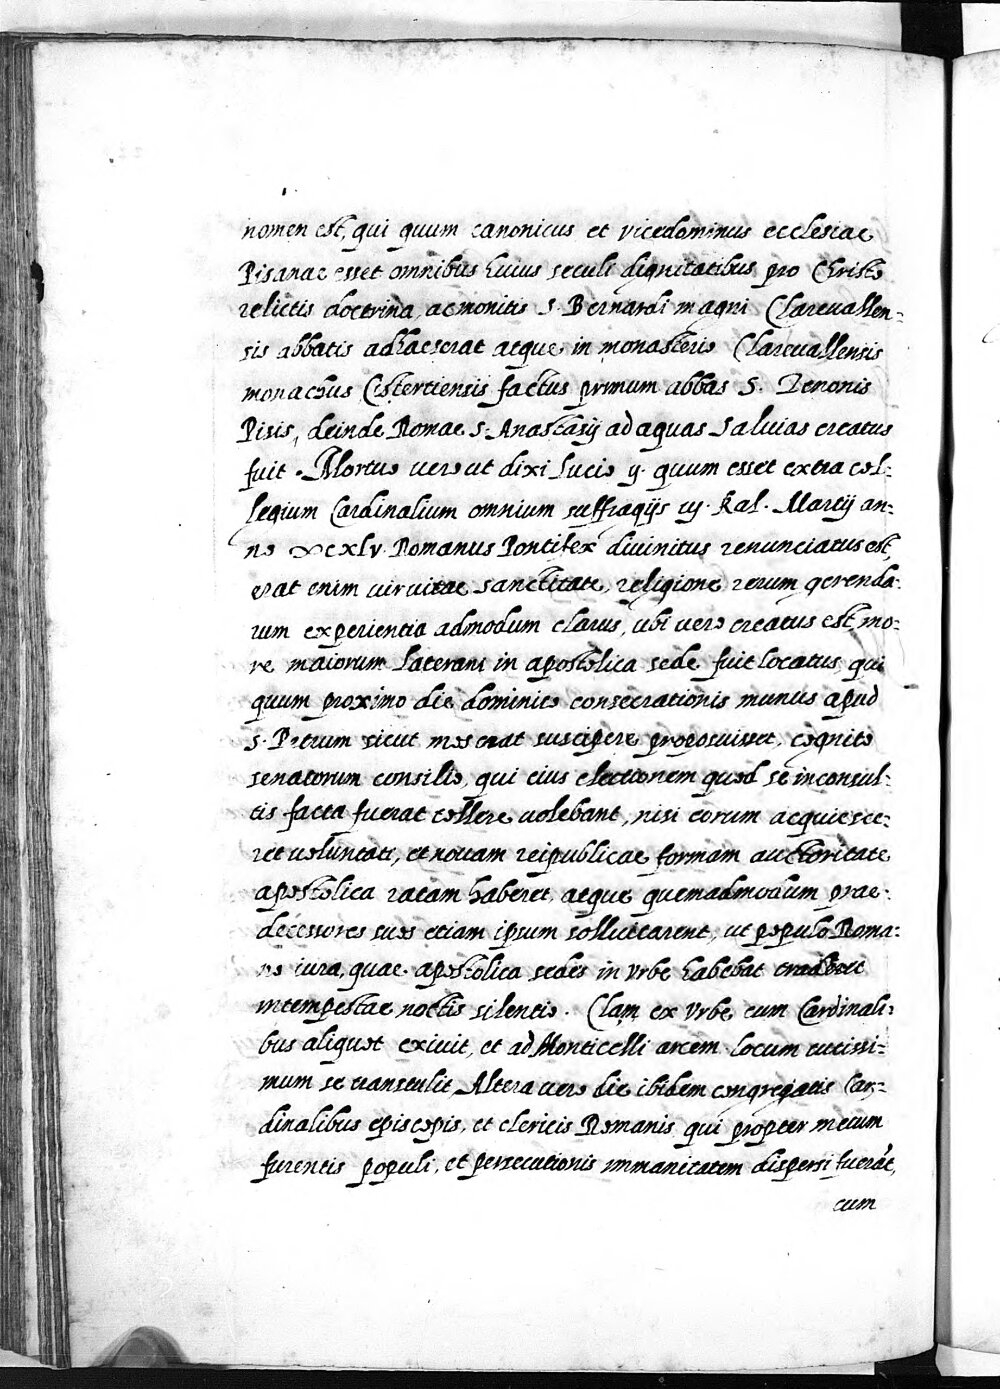 nomen est, qui quum canonicus et vicedominus ecclesiae
Pisanae esset omnibus huius seculi dignitatibus pro Christo
relictis doctrina, ac monitis S. Bernardi magni Clarevallen-
sis abbatis adhaeserat atque in monasterio Clarevallensis
monachus Cistertiensis factus primum abbas S. Zenonis
Pisis, deinde Romae S. Anastasij ad aquas Salvias creatus
fuit. Mortuo vero ut dixi Lucio ij. quum esset extra col-
legium Cardinalium omnium suffragijs iij. Kal. Martij an-
no ∞cxlv. Romanus Pontifex divinitus renunciatus est,
erat enim vir vitae sanctitate, religione rerum gerenda-
rum experientia admodum clarus, ubi vero creatus est, mo-
re maiorum Laterani in apostolica sede fuit locatus, qui
quum proximo die dominico consecrationis munus apud
S. Petrum sicut mos erat suscipere proposuisset, cognito
senatorum consilio, qui eius electionem quod se inconsul-
tis facta fuerat tollere volebant, nisi eorum acquiesce-
ret voluntati, et novam reipublicae formam auctoritate
apostolica ratam haberet, atque quemadmodum prae-
decessores suos etiam ipsum sollicitarent, ut populo Roma-
no iura, quae apostolica sedes in Urbe habebat traderet
intempestae noctis silentio. Clam ex Urbe cum Cardinali-
bus aliquot exivit, et ad Monticelli arcem locum tutissi-
mum se transtulit, Altera vero die ibidem congregatis Car-
dinalibus episcopis, et clericis Romanis qui propter metum
furentis populi, et persecutionis immanitatem dispersi fuerāt,
cum